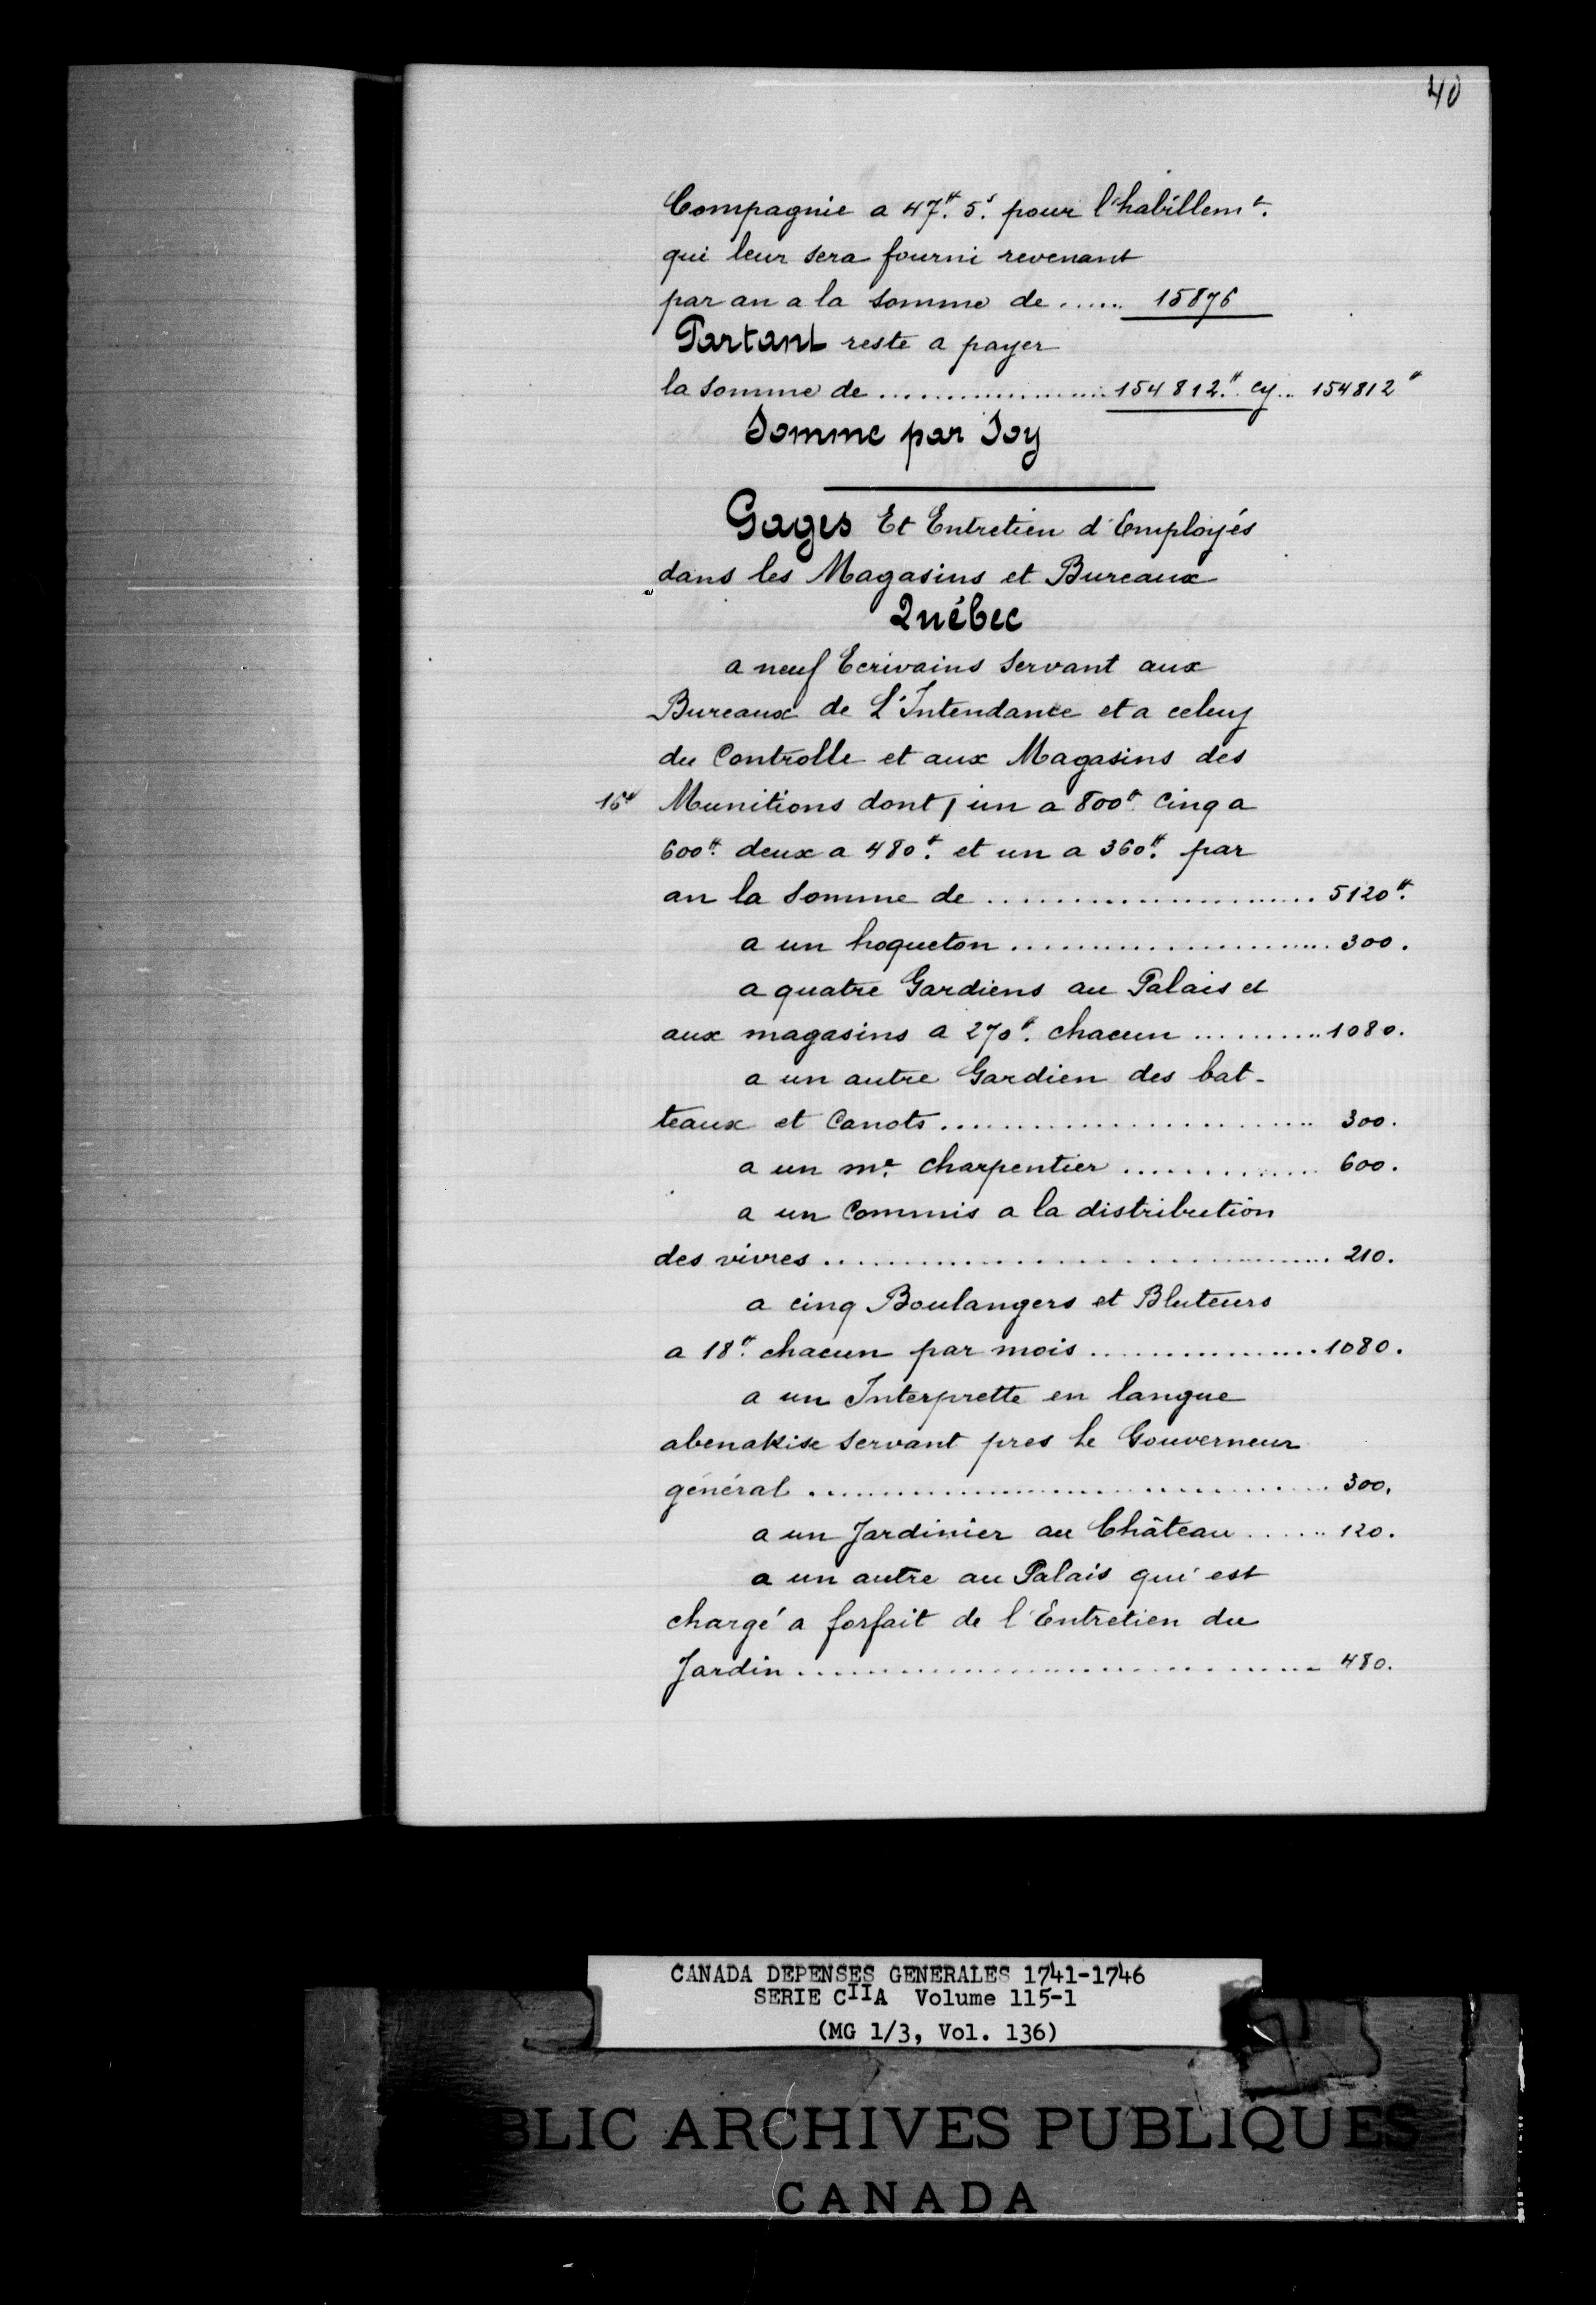 40
Compagnie a 47.# 5.s pour l'habillemt.
qui leur sera fourni revenant
par an a la somme de ...... 15876
Partant reste a payer
la somme de .................... 154812.# cy... 154812#
Somme par Soy
Gages Et Entretien d'Employés
dans les Magasins et Bureaux
Québec
a neuf Ecrivains servant aux
Bureaux de L'Intendance et a celuy
du Controlle et aux Magasins des
Munitions dont, un a 800# cinq a
600.# deux a 480.# et un a 360.# par
an la somme de ........................ 5120.#
a un hoqueton ........................ 300.
a quatre Gardiens au Palais et
aux magasins a 270.# chacun .......... 1080.
a un autre Gardien des bat-
teaux et Canots ........................ 300.
a un me. charpentier .............. 600.
a un Commis a la distribution
des vivres ........................ 210.
a cinq Boulangers et Bluteurs
a 18.# chacun par mois ................ 1080.
a un Interprette en langue
abenakise servant pres le Gouverneur
général ........................ 300.
a un Jardinier au Château ...... 120.
a un autre au Palais qui est
chargé a forfait de l'Entretien du
Jardin ........................ 480.
CANADA DEPENSES GENERALES 1741-1746
SERIE CIIA Volume 115-1
(MG 1/3, Vol. 136)
BLIC ARCHIVES PUBLIQUES
CANADA